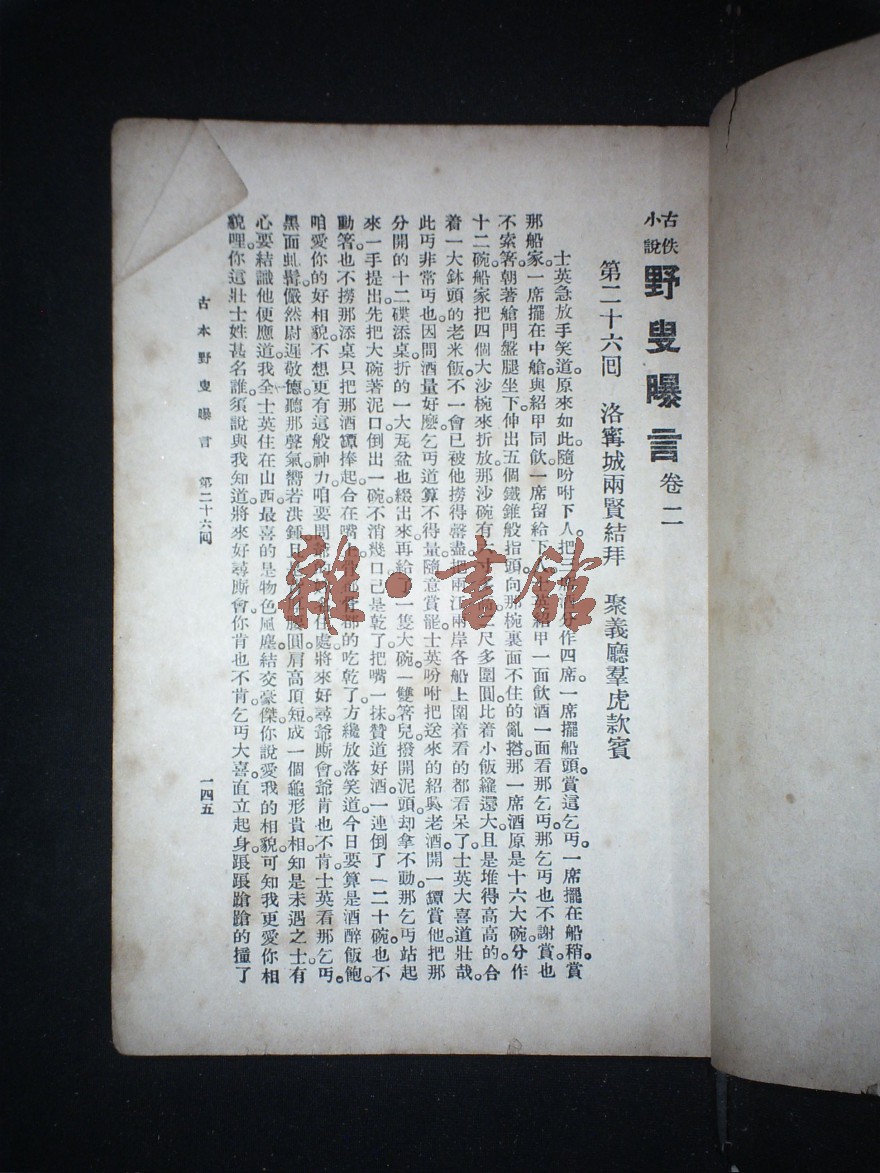 古佚小說 野叟曝言 卷二
第二十六回 洛寗城兩賢結拜 聚義廳羣虎款賓
士英急放手笑道。原來如此。隨吩咐下人。把三 分作四席。一席擺船頭。賞這乞丐。一席擺在船稍。賞
那船家。一席擺在中艙。與紹甲同飲。一席留給下 士英紹甲一面飲酒。一面看那乞丐。那乞丐也不謝賞。也
不索箸。朝著艙門盤腿坐下。伸出五個鐵錐般指頭。向那椀裏面不住的亂撈。那一席酒。原是十六大碗。分作
十二碗。船家把四個大沙椀來折放。那沙碗有 尺多圍圓。比着小飯籮還大。且是堆得高高的。合
着一大鉢頭的老米飯。不一會已被他撈得罄盡。把兩江兩岸各船上圍着看的都看呆了。士英大喜道。壯哉。
此丐非常丐也。因問酒量好麼。乞丐道。算不得量。隨意賞罷。士英吩咐把送來的紹興老酒。開一罈賞他。把那
分開的十二碟添桌。折的一大瓦盆。也綴出來。再給了一隻大碗。一雙箸兒。撥開泥頭。却拿不動。那乞丐站起
來。一手提出。先把大碗著泥口倒出一碗。不消幾口。已是乾了。把嘴一抹。贊道好酒。一連倒了一二十碗。也不
動箸。也不撈那添桌。只把那酒罈捧起。合在嘴上 都的吃乾了。方纔放落。笑道。今日要算是酒醉飯飽。
咱愛你的好相貌。不想更有這般神力。咱要問爺 住處。將來好尋爺廝會。爺肯也不肯。士英看那乞丐。
黑面虬髯。儼然尉遲敬德。聽那聲氣。嚮若洪鍾。且 腰圓肩高頂短。成一個龜形貴相。知是未遇之士。有
心要結識他。便應道。我全士英住在山西。最喜的是物色風塵。結交豪傑。你說愛我的相貌。可知我更愛你相
貌哩。你這壯士姓甚名誰。須說與我知道。將來好尋廝會你肯也不肯。乞丐大喜。直立起身。踉踉蹌蹌的撞了
古本野叟曝言 第二十六回 一四五
雜·書館